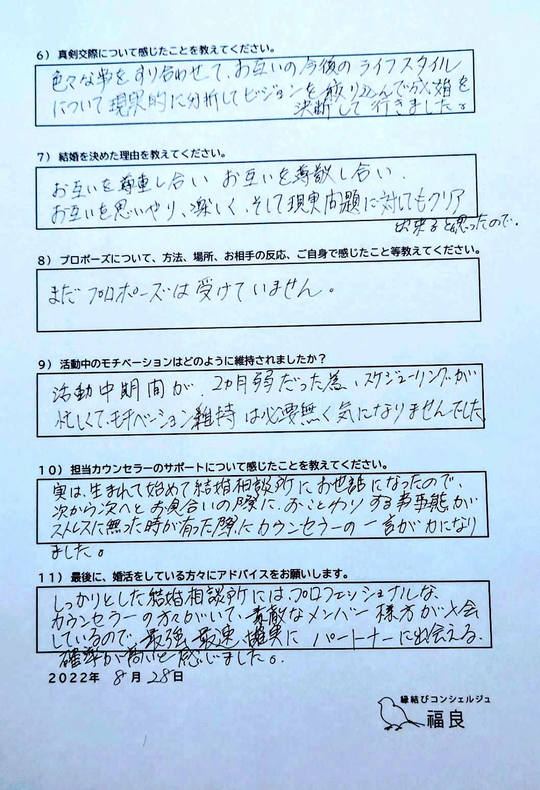 6）真剣交際について感じたことを教えてください。
色々な事をすり合わせて、お互いの今後のライフスタイル
について現実的に分析してビジョンを絞り込んで成婚を
決断して行きました。
7）結婚を決めた理由を教えてください。
お互いを尊重し合い お互いを尊敬し合い、
お互いを思いやり、楽しく、そして現実問題に対してもクリア
出来ると思ったので。
8）プロポーズについて、方法、場所、お相手の反応、ご自身で感じたこと等教えてください。
まだプロポーズは受けていません。
9）活動中のモチベーションはどのように維持されましたか？
活動中期間が、2カ月弱だった為、スケジューリングが
忙しくて、モチベーション維持は必要無く気になりませんでした
10）担当カウンセラーのサポートについて感じたことを教えてください。
実は、生まれて始めて結婚相談所にお世話になったので、
次から次へとお見合いの際に、おことわりする事事態が
ストレスに無った時が有った際にカウンセラーの一言が力になり
ました。
11）最後に、婚活をしている方々にアドバイスをお願いします。
しっかりとした結婚相談所には、プロフェッショナルな、
カウンセラーの方々がいて、素敵なメンバー様方が入会
しているので、最強 最速 確実に パートナーに出会える、
確率が高いと感じました。
2022年 8月 28日
縁結びコンシェルジュ
福良